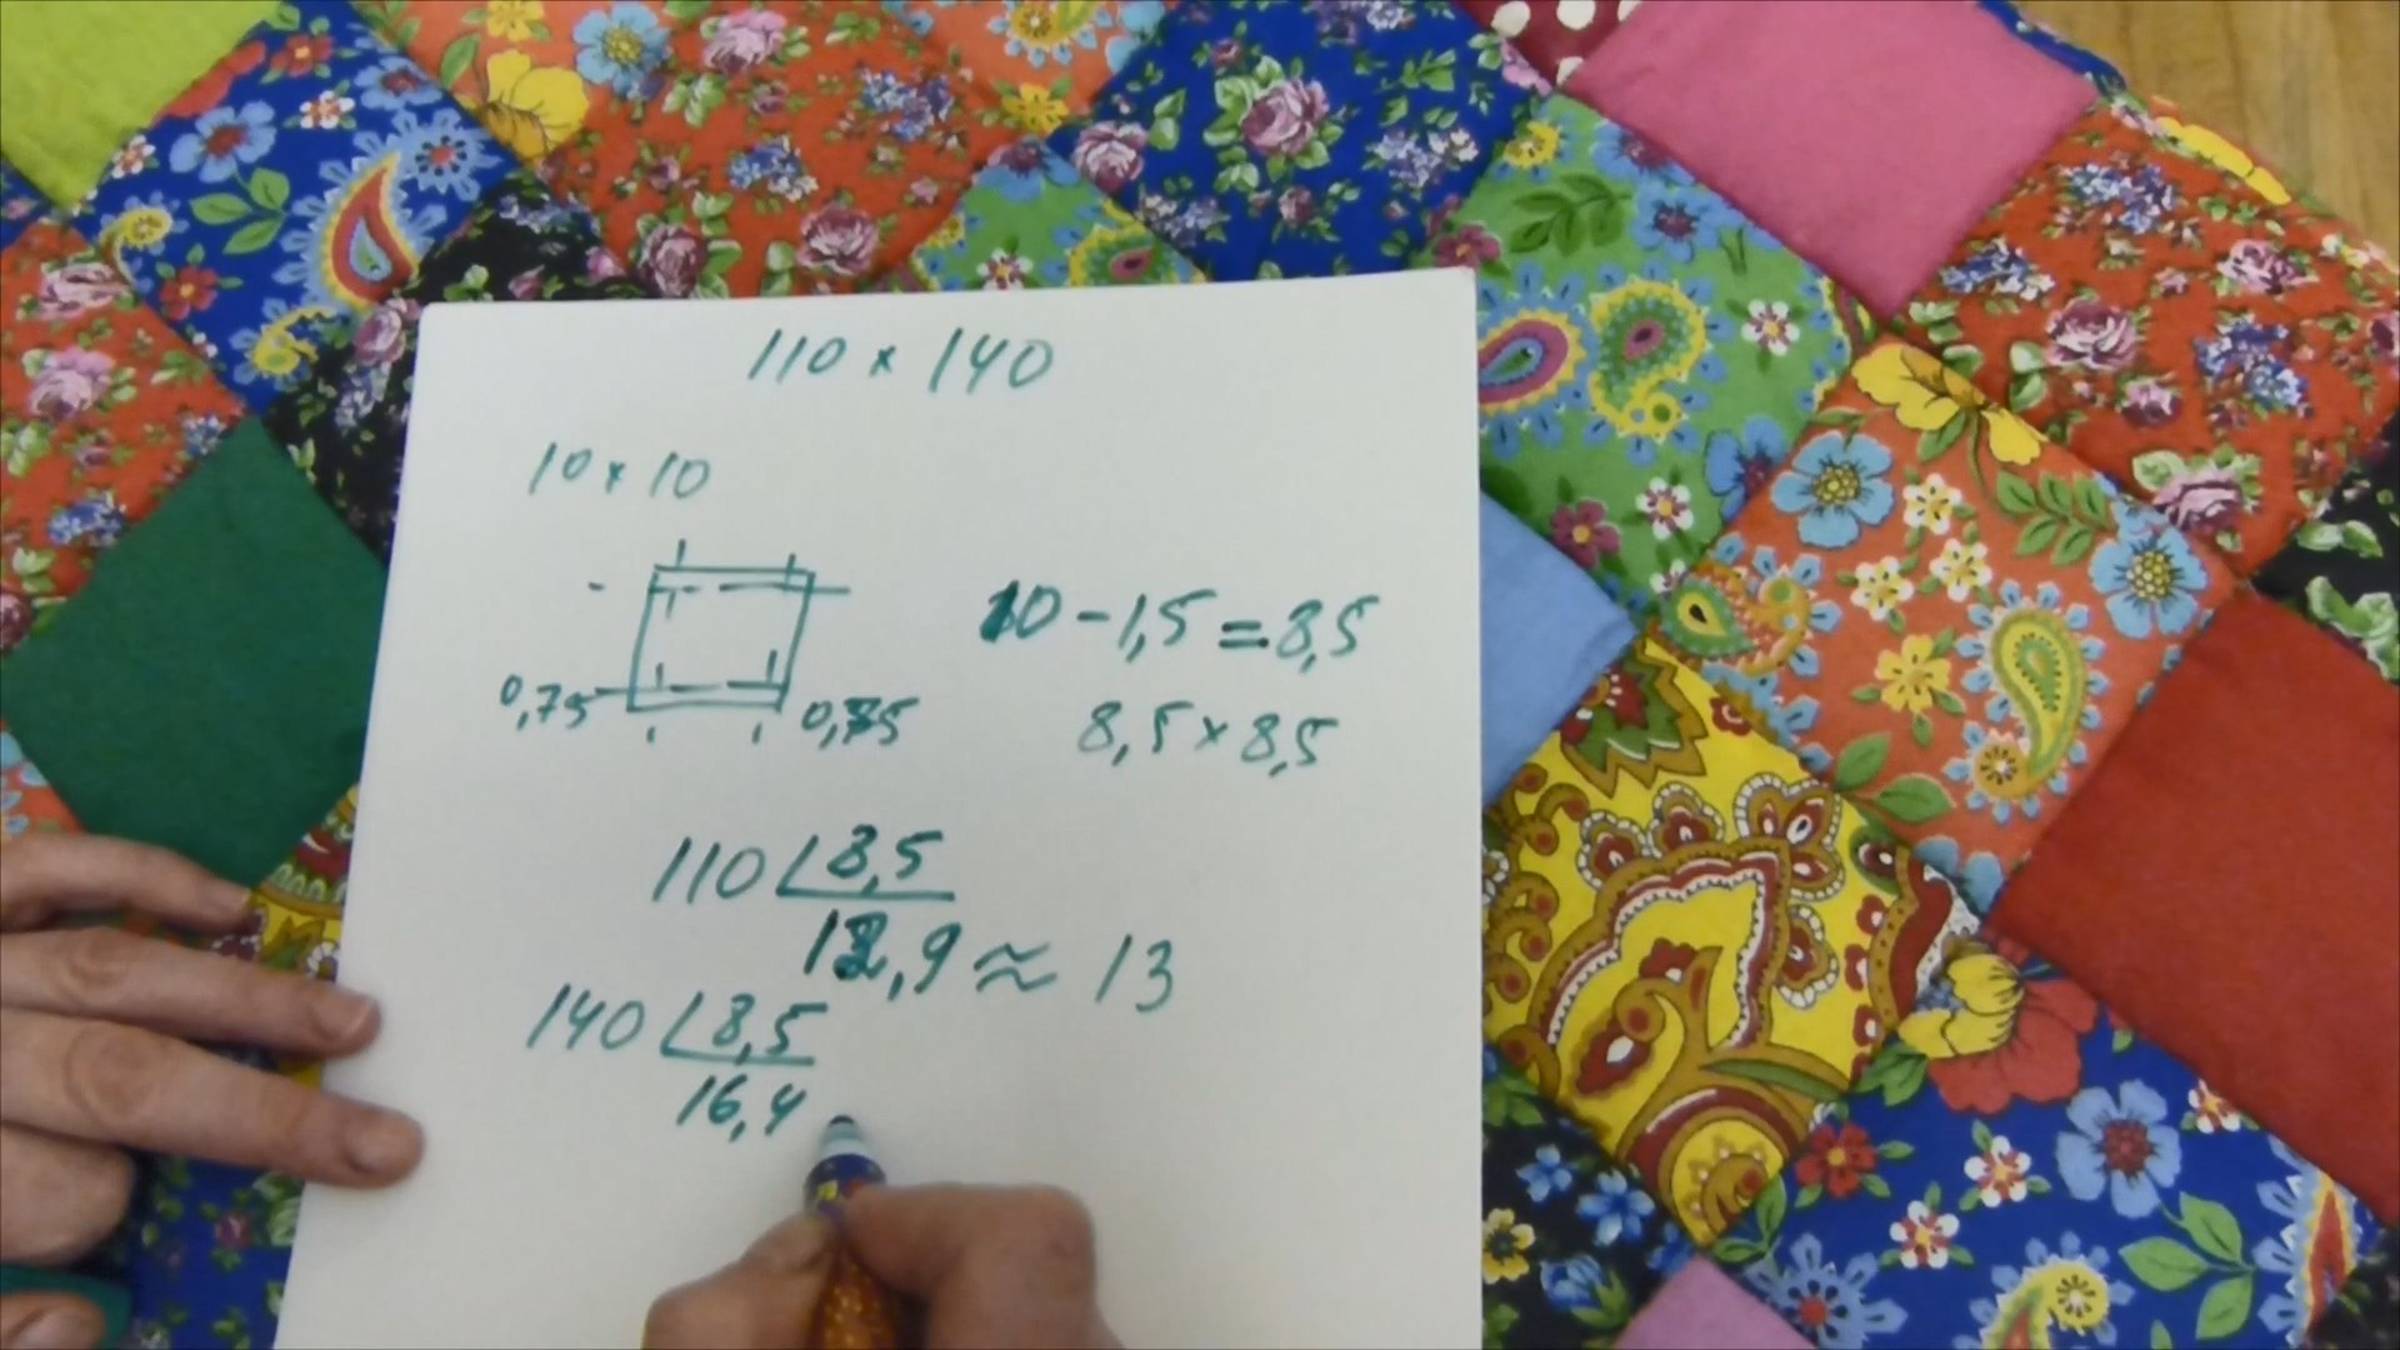 110 x 140
10 x 10
10 - 1,5 = 8,5
0,75 0,75
8,5 x 8,5
110 8,5
12,9 ≈ 13
140 8,5
16,4